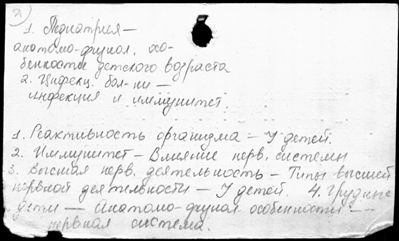 2)
1. Педиатрия —
анатомо-физиол. осо-
бенности детского возраста
2. Инфекц. бол-ни —
инфекция и иммунитет.
1. Реактивность организма — У детей.
2. Иммунитет — Влияние нерв. системы
3. Высшая нерв. деятельность — Типы высшей
нервной деятельности — У детей. 4. Грудные
дети — Анатомо-физиол особенности —
нервная система.